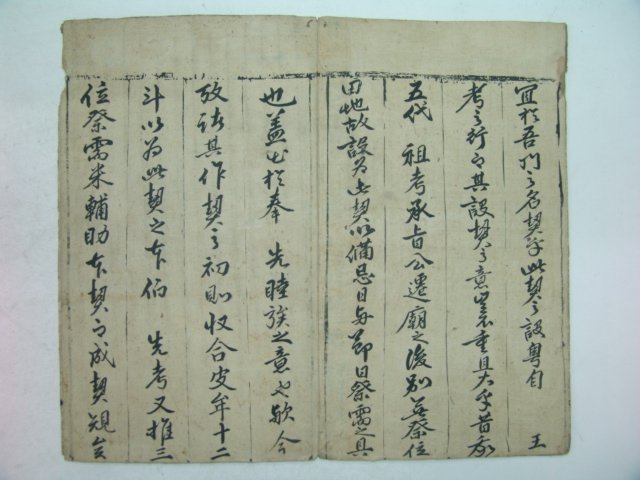 宜於吾門之名契乎此契之設粤自 王
考之行而其設契之意豈不重且大乎昔我
五代 祖考承旨公遷廟之後別無祭位
田地故設爲此契以備忌日与節日祭需之具
也盖出於奉 先睦族之意也歟今
攷諸其作契之初則收合皮牟十二
斗以爲此契之 伯 先考又推三
位祭需米輔助 契而成契規